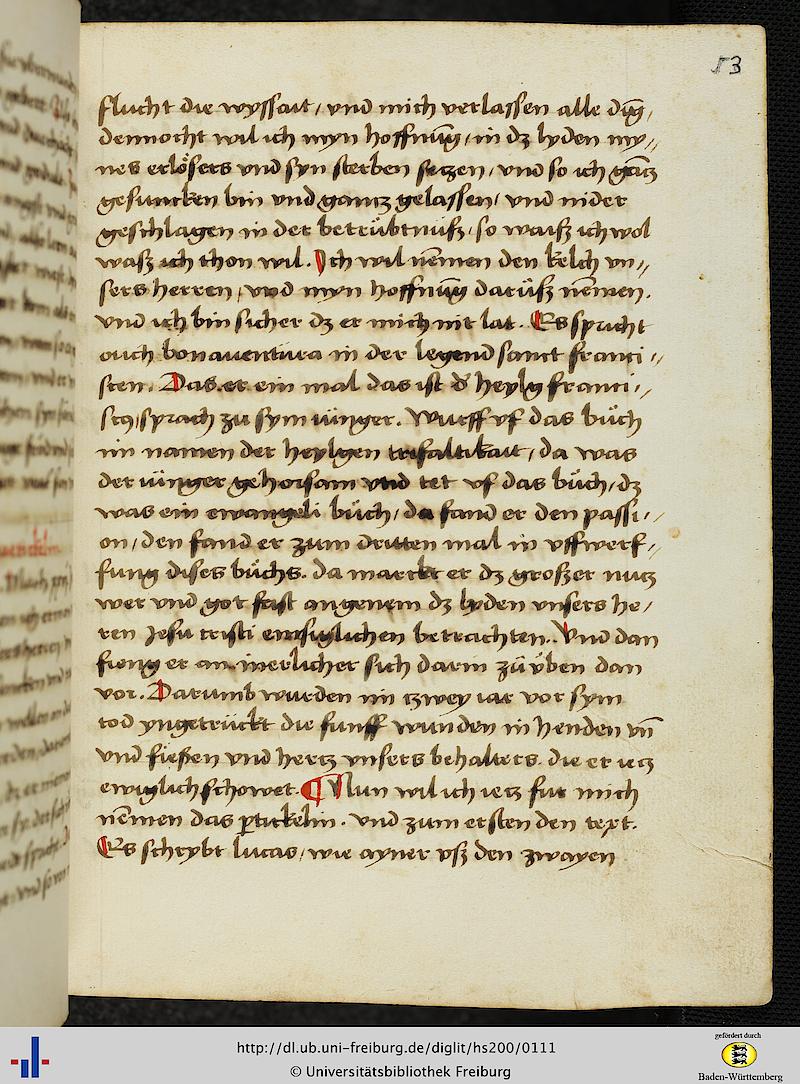 53
flucht die wyssait / vnd mich verlassen alle dīg /
dennocht wil ich myn hoffnūg / in dz lyden my〃
nes erlösers vnd syn sterben setzen / vnd so ich gātz
gesuncken bin vnd gantz gelassen / vnd nider
geschlagen in der betrübtnuß / so waiß ich wol
waß ich thon wil . Ich wil nēmen den kelch vn〃
sers herren / vnd myn hoffnūg daruß nēmen .
vnd ich bin sicher dz er mich nit lat . Es spricht
ouch bonauentura in der legend sanct franci〃
scen . Das er ein mal das ist d' heylg franci〃
scꝯ / sprach zu sym iünger . Wurff vf das bůch
im namen der heylgen trifaltikait / da was
der iünger gehorsam vnd tet vf das bůch / dz
was ein ewangeli bůch / da fand er den passi〃
on / den fand er zum dritten mal in vffwerf〃
fung dises bůchs . da marckt er dz großer nutz
wer vnd got fast angenem dz lyden vnsers he /
ren Jesu cristi emsiglichen betrachten . Vnd dan
fieng er an inerlicher sich darin zů yͤben dan
vor . Darumb wurden im tzwey iar vor sym
tod yngetrückt die funff wunden in henden vn̄
vnd fießen vnd hertz vnsers behalters . die er ietz
ewiglich schowet . ¶ Nun wil ich ietz fur mich
nēmen das ꝑtickelin . vnd zum ersten den text .
Es schrybt lucas / wie ayner vß den zwayen
http://dl.ub.uni-freiburg.de/diglit/hs200/0111
© Universitätsbibliothek Freiburg
gefördert durch
Baden-Württemberg